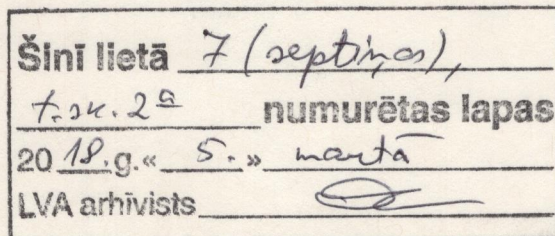 Šinī lietā 7 (septiņas),
t.sk. 2a numurētas lapas
2018.g.« 5. » martā
LVA arhīvists